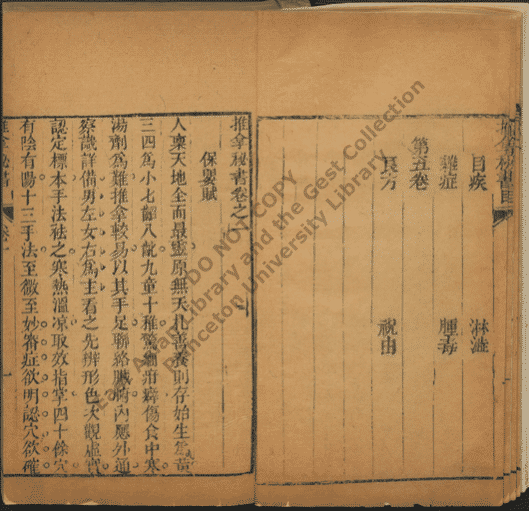 目疾 淋澁
雜症 腫毒
第五卷
良方 祝由
推拿秘書卷之一
保嬰賦
人稟天地全而最靈原無夭札善養則存始生為
三四為小七齠八齔九童十稚驚癇疳癖傷食中寒
湯劑為難推拿較易以其手足聯絡臟腑內應外通
察識詳備男左女右為主看之先辨形色次觀虛實
認定標本手法祛之寒熱溫凉取效指掌四十餘穴
有陰有陽十三手法至微至妙審症欲明認穴欲確
推拿秘書
卷一
一
DO NOT COPY
East Asian Library and the Gest Collection
Princeton University Library